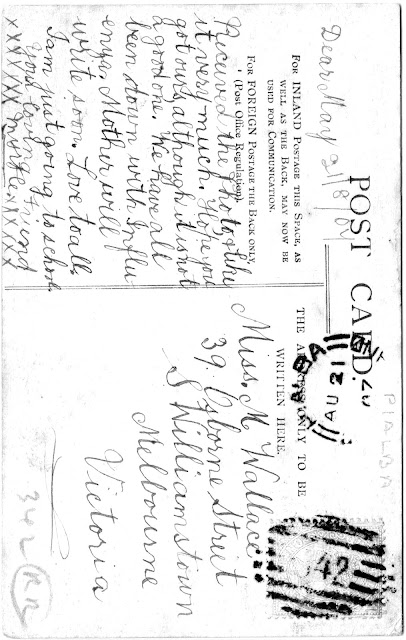 POST CARD.
FOR INLAND POSTAGE THIS SPACE, AS
WELL AS THE BACK, MAY NOW BE
USED FOR COMMUNICATION.
FOR FOREIGN POSTAGE THE BACK ONLY
(Post Office Regulation).
THE ADDRESS ONLY TO BE
WRITTEN HERE.
Dear May 21/8/
Recieved the photo & like
it very much. Hope you
got ours, although it is not
a good one. We have all
been down with Influ
enza. Mother will
write soon. Love to all.
I am just going to school.
Your loving friend
xxxxxxx xxxxx
Miss. M Wallace
39. Osborne Street
S Williamstown
Melbourne
Victoria
AU 21
PIALBA
42
342 RR